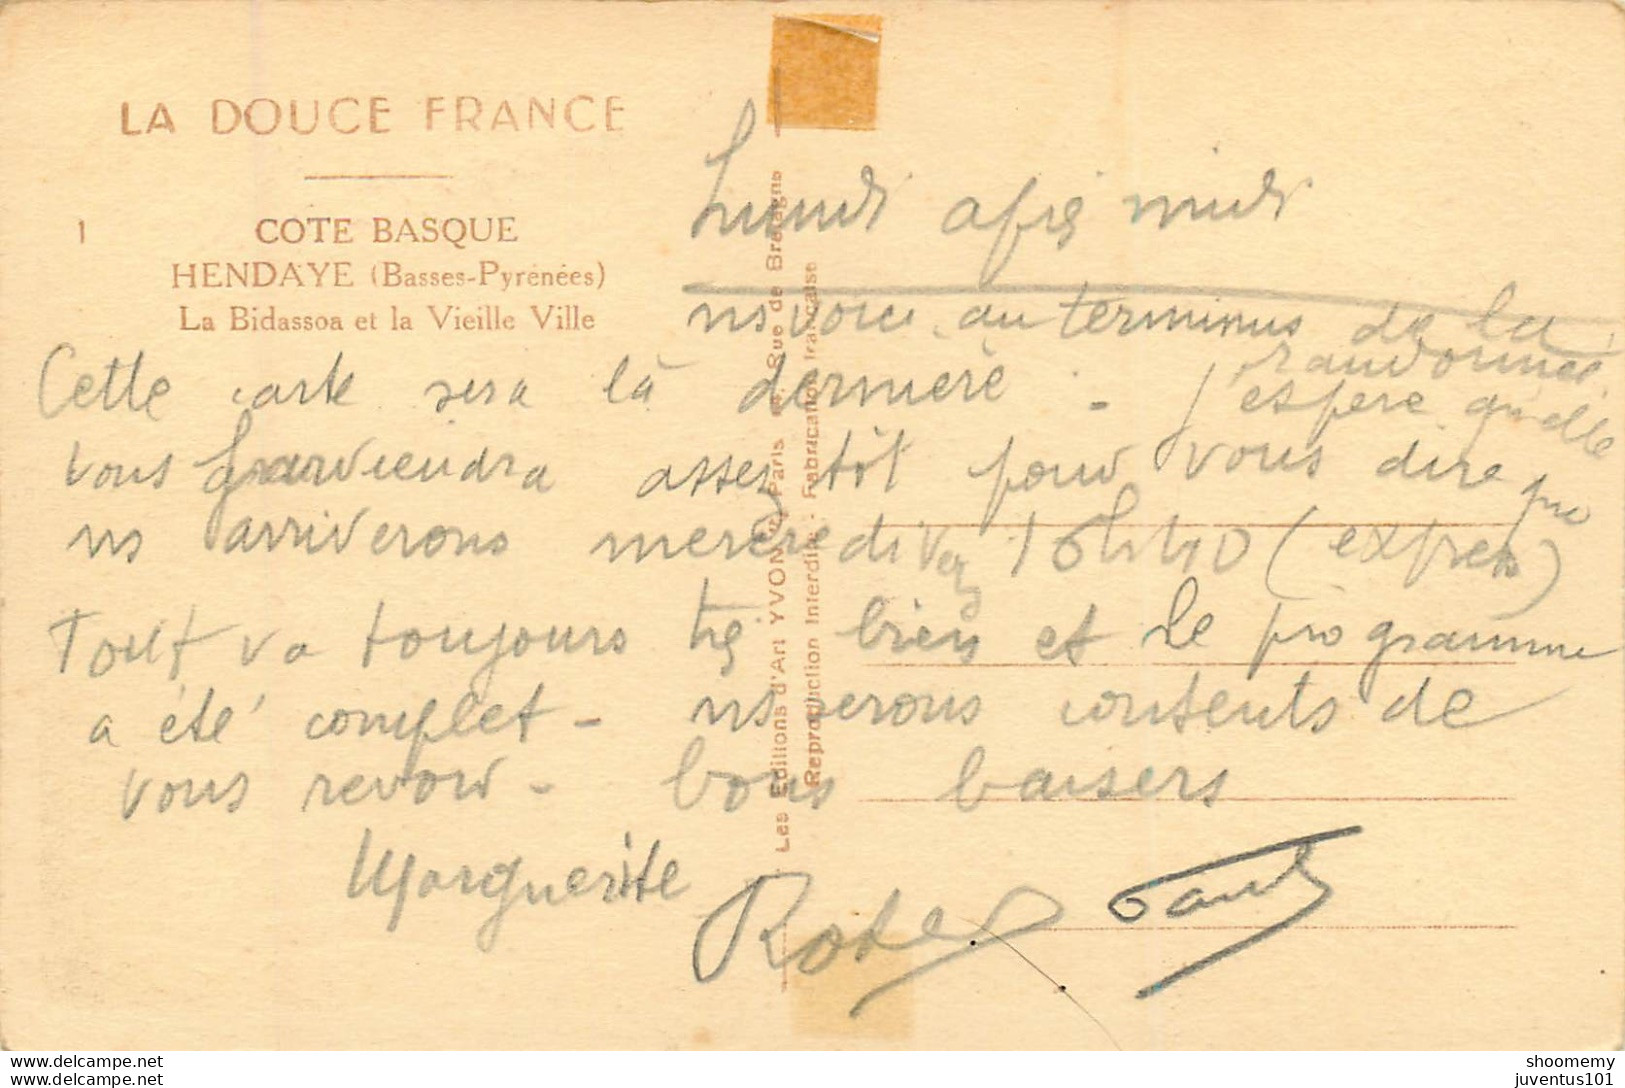 LA DOUCE FRANCE
1
COTE BASQUE
HENDAYE (Basses-Pyrénées)
La Bidassoa et la Vieille Ville
Les Editions d'Art YVON Paris Rue de Bretagne
Reproduction Interdite - Fabrication française
Lundi après midi
ns voici au terminus de la
randonnée
Cette carte sera la dernière - J'espère qu'elle
vous parviendra assez tôt pour vous dire que
ns arriverons mercredi vers 16h40 (express)
Tout va toujours très bien et le programme
a été complet - ns serons contents de
vous revoir - bons baisers
Marguerite
www.delcampe.net
juventus101
shoomemy
juventus101